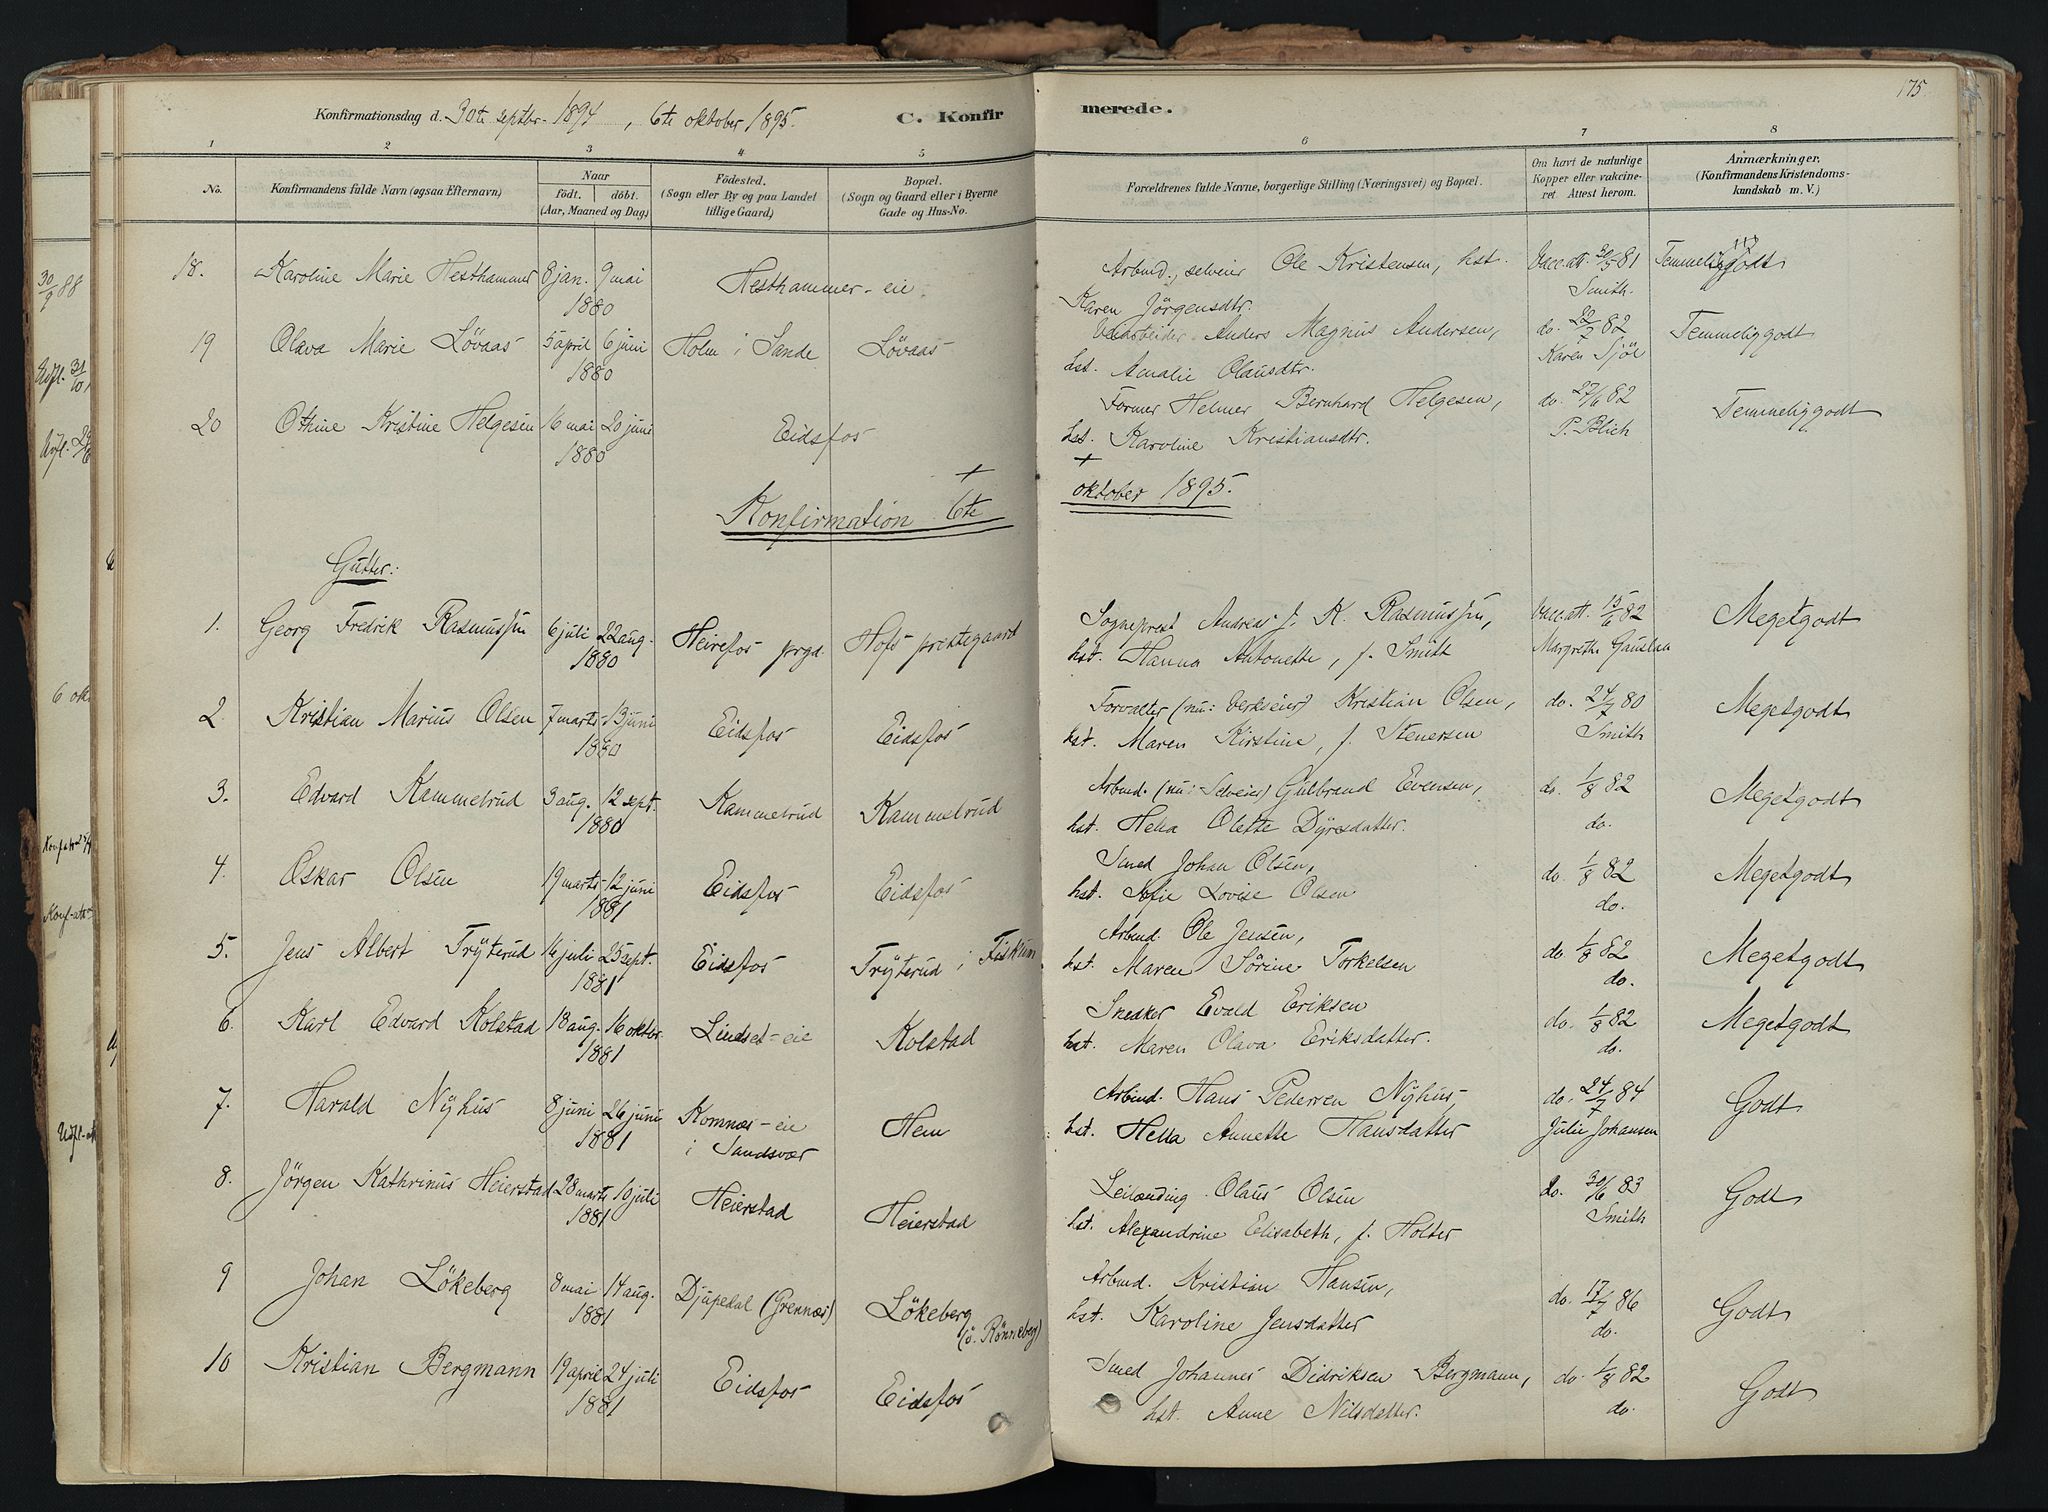 175
Konfirmationsdag d. 30te septbr. 1894, 6te oktober 1895. C. Konfir merede.
1 2 3 4 5 6 7 8
No. Konfirmandens fulde Navn (ogsaa Efternavn) Naar født. døbt. (Aar, Maaned og Dag) Fødested. (Sogn eller By og paa Landet tillige Gaard) Bopæl. (Sogn og Gaard eller i Byerne Gade og Hus-No. Forældrenes fulde Navne, borgerlige Stilling (Næringsvei) og Bopæl. Om havt de naturlige Kopper eller vakcineret Attest herom. Anmærkninger. (Konfirmandens Kristendomskundskab m. V.)
18. Karoline Marie Hesthammer 8 jan. 9 mai Hesthammer-eie Arbmd., selveier Ole Kristensen, hst. Vacc.att. 30/5 81 Temmelig godt
1880 Karen Jörgensdtr. Smith.
19 Olava Marie Lövaas 5 april 6 juni Holm i Sande Lövaas Anders Magnus Andersen, do. 22/7 82 Temmelig godt
1880 hst. Amalie Olausdtr. Karen Sjöl
20 Othine Kristine Helgesen 16 mai 20 juni Eidsfos Former Helmer Bernhard Helgesen, do. 27/6 82 Temmelig godt
1880 hst. Karoline Kristiansdtr. P. Blich
+ +
Konfirmation 6te oktober 1895.
Gutter:
1. Georg Fredrik Rasmussen 6 juli 22 aug. Heirefos prgd. Hofs prestegaard Sogneprest Andreas J. K. Rasmussen, Vacc.att. 15/6 82 Megetgodt
1880 hst. Hanna Antonette, f. Smith Margrethe Gauslaa
2. Kristian Marius Olsen 7 marts 13 juni Eidsfos Eidsfos Forvalter (nu: Verkseier) Kristian Olsen, do. 24/7 80 Megetgodt
1880 hst. Maren Kirstine, f. Stenersen Smith
3. Edvard Kammelrud 3 aug. 12 sept. Kammelrud Kammelrud Arbmd. (nu: Selveier) Gulbrand Evensen, do. 1/8 82 Megetgodt
1880 hst. Hella Olette Dyresdatter. do.
4. Oskar Olsen 19 marts 12 juni Eidsfos Eidsfos Smed Johan Olsen, do. 1/8 82 Megetgodt
1881 hst. Sofie Lovise Olsen do.
5. Jens Albert Tryterud 16 juli 25 sept. Eidsfos Tryterud i Fiskum Arbmd. Ole Jensen, do. 1/8 82 Megetgodt
1881 hst. Maren Sörine Torkelsen do.
6. Karl Edvard Kolstad 18 aug. 16 oktbr. Lindset-eie Kolstad Snedker Evald Eriksen do. 1/8 82 Megetgodt
1881 hst. Maren Olava Eriksdatter. do.
7. Harald Nyhus 8 juni 26 juni Komnæs-eie i Sandsvær Hem Arbmd. Hans Pedersen Nyhus, do. 24/7 84 Godt
1881 hst. Hella Annette Hansdatter Julie Johansen
8. Jörgen Kathrinus Heierstad 28 marts 10 juli Heierstad Heierstad Leilænding Olaus Olsen do. 30/6 83 Godt
1881 hst. Alexandrine Elisabeth, f. Holter Smith
9 Johan Lökeberg 8 mai 14 aug. Djupedal (Grennæs) Lökeberg (ö. Rönneberg) Arbmd. Kristian Hansen, do. 17/7 86 Godt
1881 hst. Karoline Jensdatter do.
10 Kristian Bergmann 19 april 24 juli Eidsfos Eidsfos Smed Johannes Didriksen Bergmann, do. 1/8 82 Godt
1881 hst. Anne Nilsdatter. do.
30/9 88
6 okt